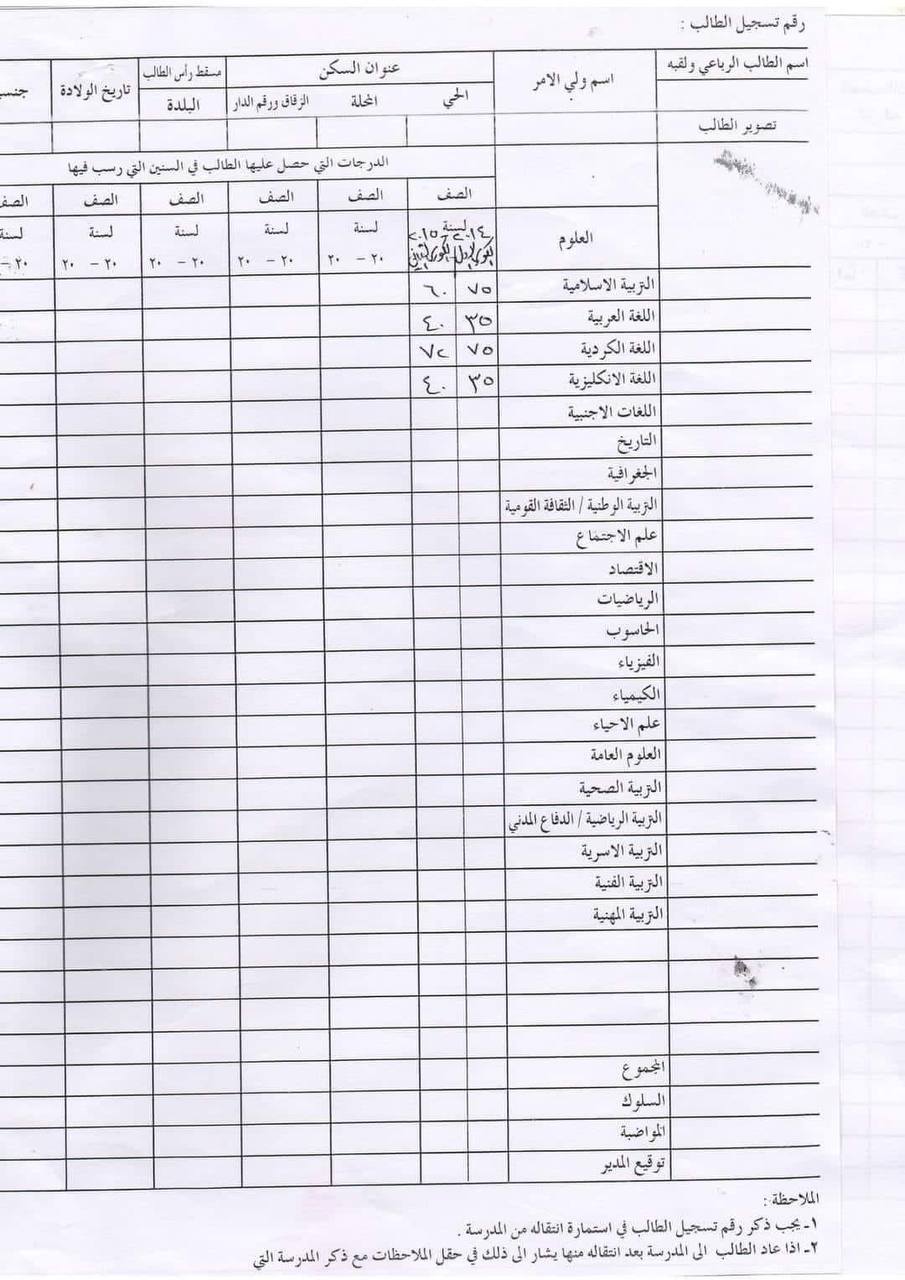 رقم تسجيل الطالب :
اسم الطالب الرباعي ولقبه
اسم ولي الامر
عنوان السكن
مسقط رأس الطالب
تاريخ الولادة
الحي
المحلة
الزقاق ورقم الدار
البلدة
تصوير الطالب
الدرجات التي حصل عليها الطالب في السنين التي رسب فيها
الصف الصف الصف الصف الصف الصف
العلوم
لسنة لسنة لسنة لسنة لسنة لسنة
٢٠١٤ - ٢٠١٥
٢٠ - ٢٠ ٢٠ - ٢٠ ٢٠ - ٢٠ ٢٠ - ٢٠
التربية الاسلامية ٧٥ ٦٠
اللغة العربية ٣٥ ٤٠
اللغة الكردية ٧٥ ٧٢
اللغة الانكليزية ٣٥ ٤٠
اللغات الاجنبية
التاريخ
الجغرافية
التربية الوطنية / الثقافة القومية
علم الاجتماع
الاقتصاد
الرياضيات
الحاسوب
الفيزياء
الكيمياء
علم الاحياء
العلوم العامة
التربية الصحية
التربية الرياضية / الدفاع المدني
التربية الاسرية
التربية الفنية
التربية المهنية
المجموع
السلوك
المواضبة
توقيع المدير
الملاحظة :
١- يجب ذكر رقم تسجيل الطالب في استمارة انتقاله من المدرسة .
٢- اذا عاد الطالب الى المدرسة بعد انتقاله منها يشار الى ذلك في حقل الملاحظات مع ذكر المدرسة التي